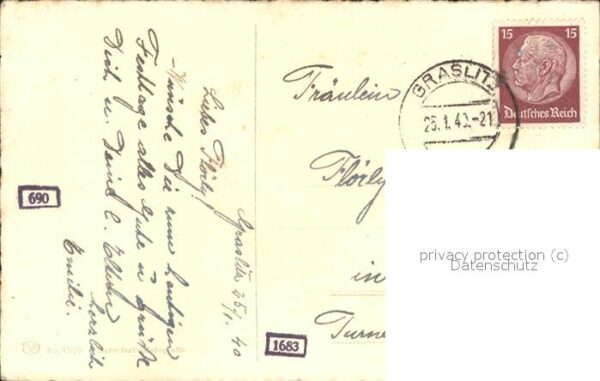 Graslitz 25/1. 40
Liebes Flörly!
Wünsche Dir zum heutigen
Festtage alles Gute u. grüße
Dich u. Deine l. Eltern
herzlich
Emilie.
690
1683
Fräulein
Flörly
in
Turne
GRASLITZ
25.1.40.-21
15 15
Deutsches Reich
privacy protection (c)
Datenschutz